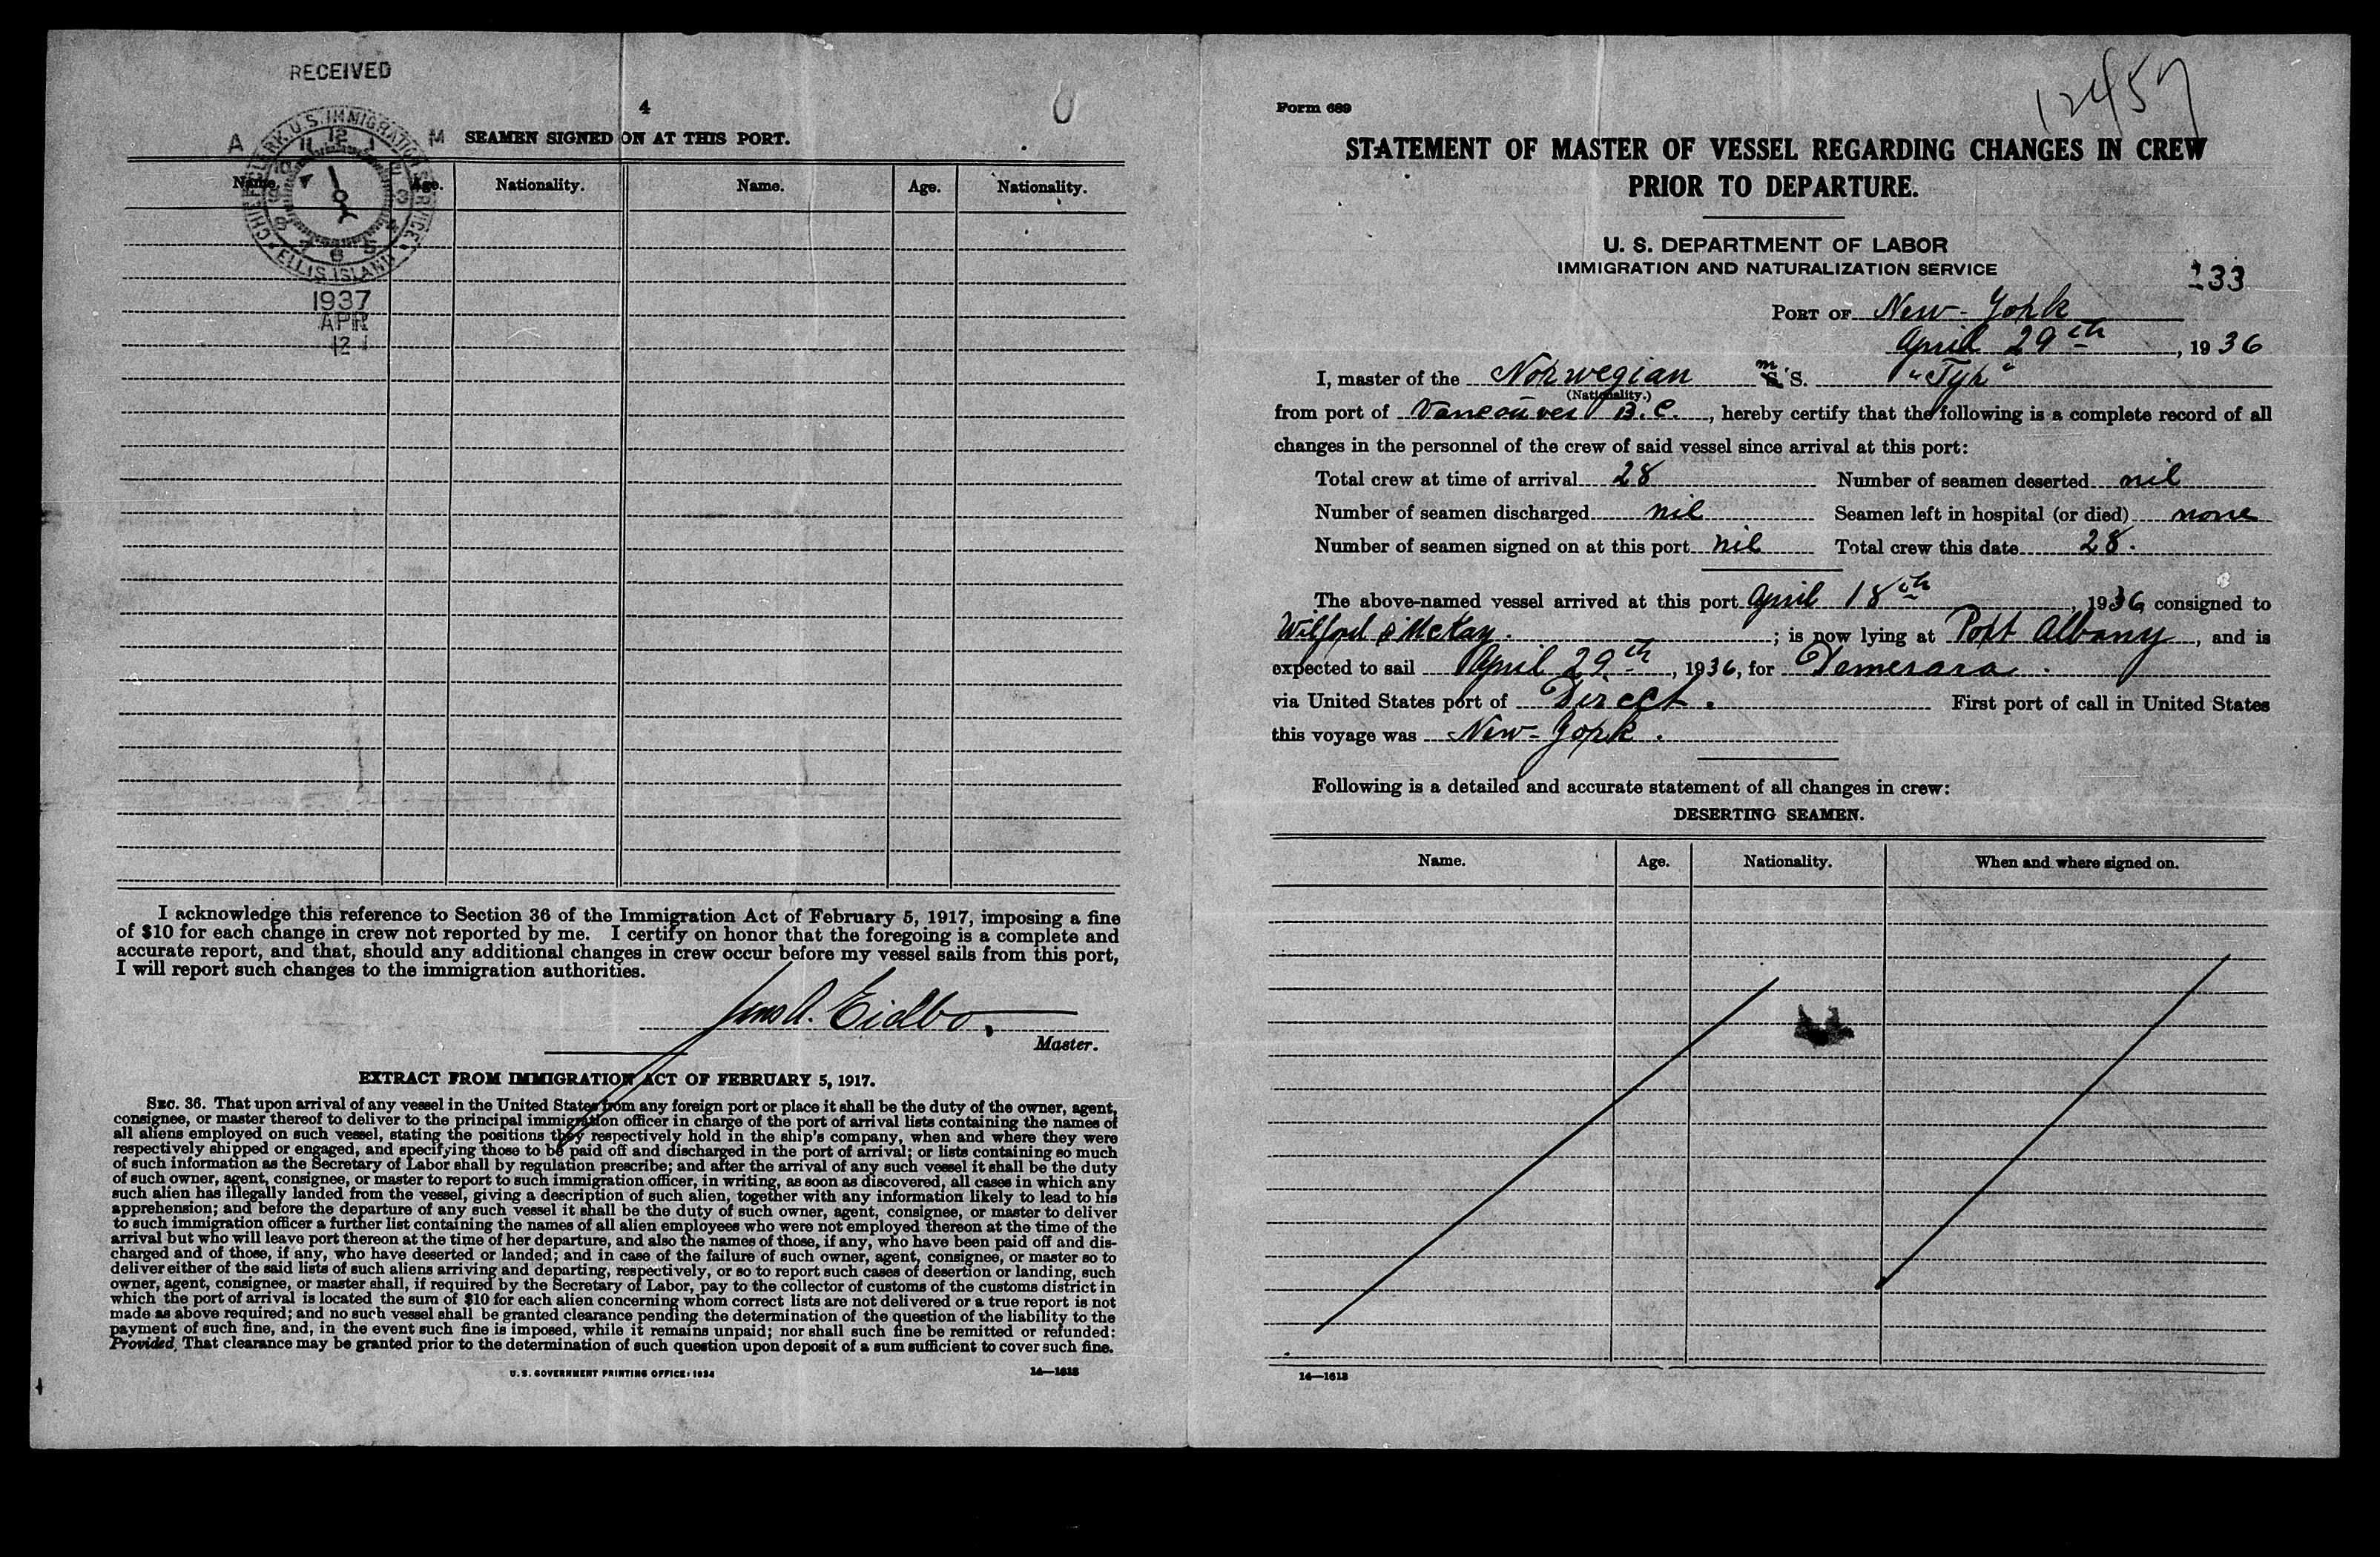 RECEIVED
4
SEAMEN SIGNED ON AT THIS PORT.
A M
CHIEF CLERK U.S. IMMIGRATION SERVICE
ELLIS ISLAND
12 1 2 3 4 5 6 7 8 9 10 11
1937
APR
12
Name. Age. Nationality. Name. Age. Nationality.
I acknowledge this reference to Section 36 of the Immigration Act of February 5, 1917, imposing a fine
of $10 for each change in crew not reported by me. I certify on honor that the foregoing is a complete and
accurate report, and that, should any additional changes in crew occur before my vessel sails from this port,
I will report such changes to the immigration authorities.
Jens A. Eidbo.
Master.
EXTRACT FROM IMMIGRATION ACT OF FEBRUARY 5, 1917.
SEC. 36. That upon arrival of any vessel in the United States from any foreign port or place it shall be the duty of the owner, agent,
consignee, or master thereof to deliver to the principal immigration officer in charge of the port of arrival lists containing the names of
all aliens employed on such vessel, stating the positions they respectively hold in the ship's company, when and where they were
respectively shipped or engaged, and specifying those to be paid off and discharged in the port of arrival; or lists containing so much
of such information as the Secretary of Labor shall by regulation prescribe; and after the arrival of any such vessel it shall be the duty
of such owner, agent, consignee, or master to report to such immigration officer, in writing, as soon as discovered, all cases in which any
such alien has illegally landed from the vessel, giving a description of such alien, together with any information likely to lead to his
apprehension; and before the departure of any such vessel it shall be the duty of such owner, agent, consignee, or master to deliver
to such immigration officer a further list containing the names of all alien employees who were not employed thereon at the time of the
arrival but who will leave port thereon at the time of her departure, and also the names of those, if any, who have been paid off and dis-
charged and of those, if any, who have deserted or landed; and in case of the failure of such owner, agent, consignee, or master so to
deliver either of the said lists of such aliens arriving and departing, respectively, or so to report such cases of desertion or landing, such
owner, agent, consignee, or master shall, if required by the Secretary of Labor, pay to the collector of customs of the customs district in
which the port of arrival is located the sum of $10 for each alien concerning whom correct lists are not delivered or a true report is not
made as above required; and no such vessel shall be granted clearance pending the determination of the question of the liability to the
payment of such fine, and, in the event such fine is imposed, while it remains unpaid; nor shall such fine be remitted or refunded:
Provided, That clearance may be granted prior to the determination of such question upon deposit of a sum sufficient to cover such fine.
U. S. GOVERNMENT PRINTING OFFICE: 1934 14—1613
12457
Form 689
STATEMENT OF MASTER OF VESSEL REGARDING CHANGES IN CREW
PRIOR TO DEPARTURE.
U. S. DEPARTMENT OF LABOR
IMMIGRATION AND NATURALIZATION SERVICE
133
PORT OF New-York
April 29th, 1936
I, master of the Norwegian m. S. "Tyr"
(Nationality.)
from port of Vancouver B.C., hereby certify that the following is a complete record of all
changes in the personnel of the crew of said vessel since arrival at this port:
Total crew at time of arrival 28 Number of seamen deserted nil
Number of seamen discharged nil Seamen left in hospital (or died) none
Number of seamen signed on at this port nil Total crew this date 28.
The above-named vessel arrived at this port April 18th, 1936, consigned to
Wilford & McKay. ; is now lying at Port Albany, and is
expected to sail April 29th, 1936, for Demerara.
via United States port of Direct. First port of call in United States
this voyage was New-York.
Following is a detailed and accurate statement of all changes in crew:
DESERTING SEAMEN.
Name. Age. Nationality. When and where signed on.
14—1613